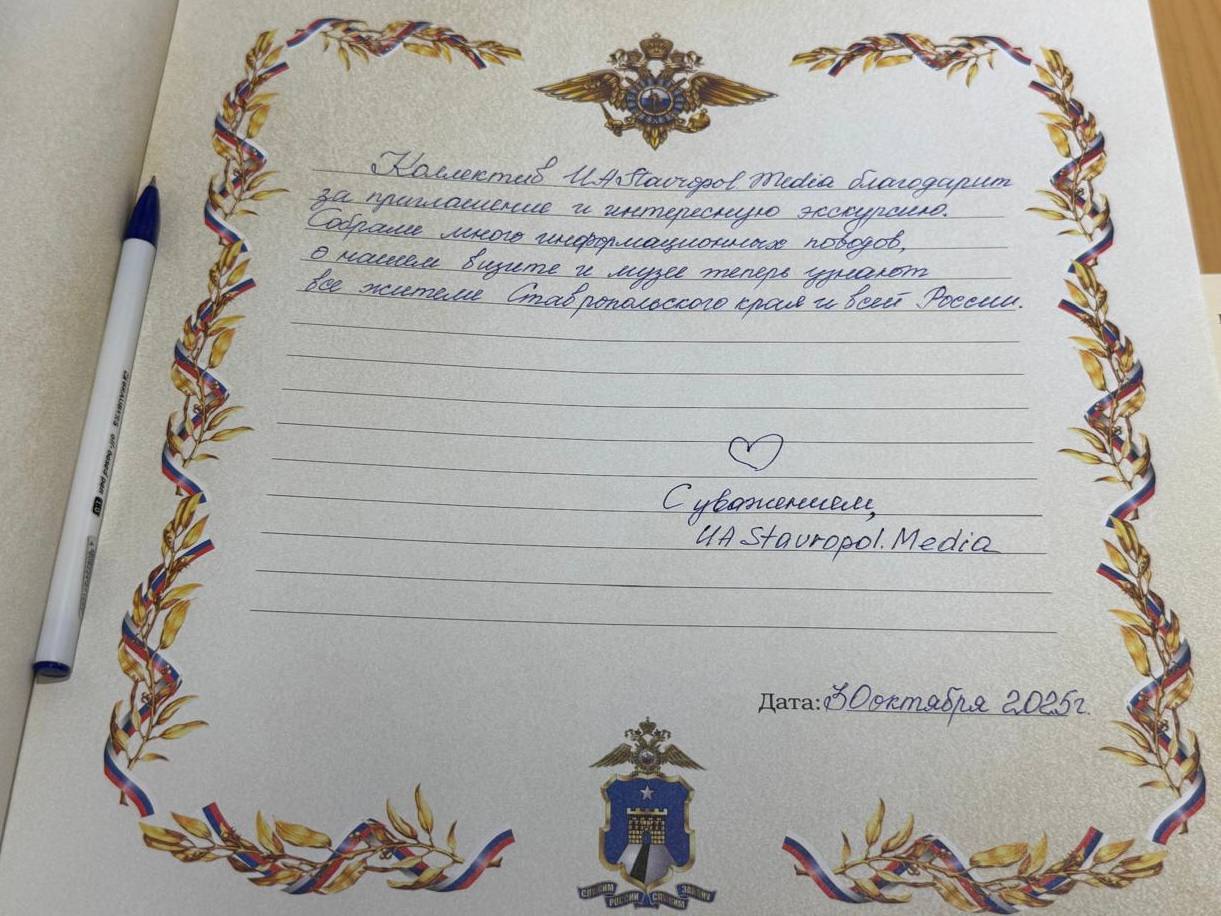 Коллектив ИА Stavropol.Media благодарит
за приглашение и интересную экскурсию.
Собрали много информационных поводов,
о нашем визите и музее теперь узнают
все жители Ставропольского края и всей России.
С уважением,
ИА Stavropol.Media
Дата: 30 октября 2025г.
СЛУЖИМ РОССИИ СЛУЖИМ ЗАКОНУ